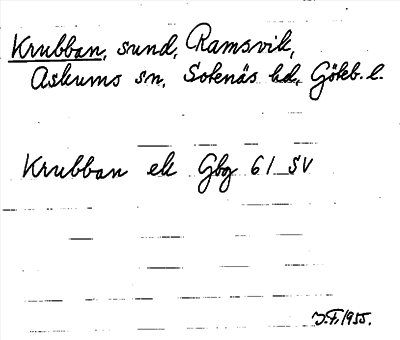 Krubban, sund, Ramsvik,
Askums sn, Sotenäs hd, Göteb. l.
Krubban ek Gbg 61 SV
J.F. 1955.